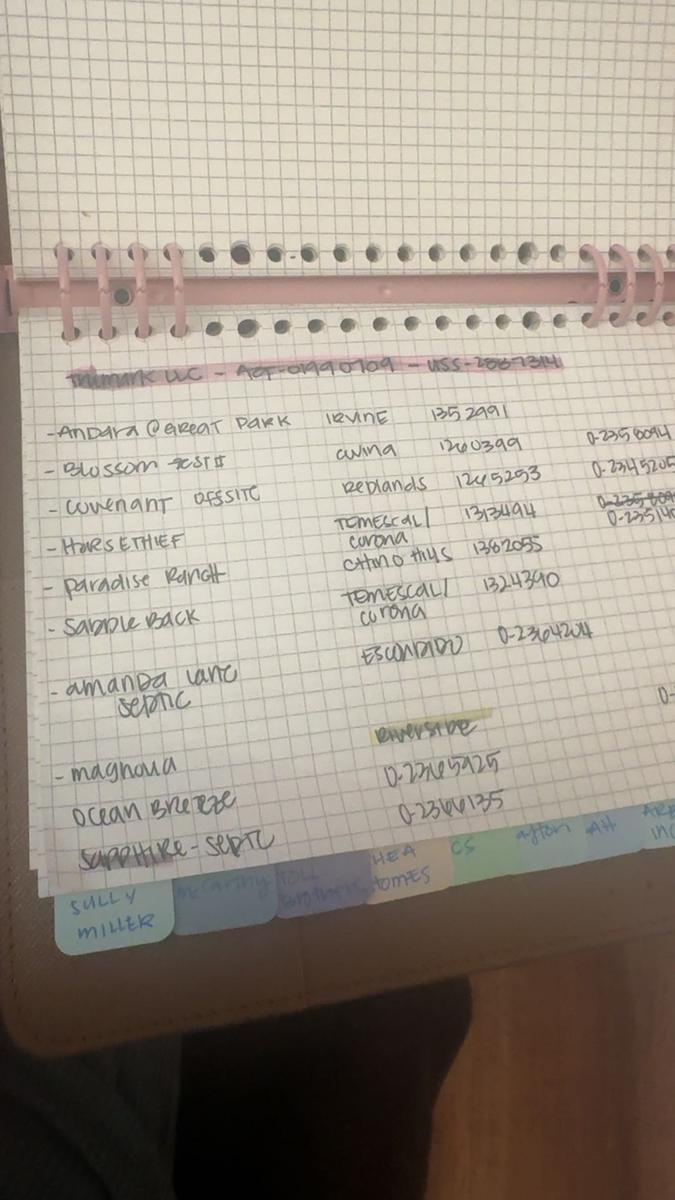 trumark LLC - ACT-01990709 - USS-2867314
- Andara @ Great Park Irvine 1352991
- Blossom Covina 1260399 0-2358094
- Covenant offsite Redlands 1265253 0-2345205
- Horsethief Temescal/ Corona 1313494
- Paradise Ranch Chino Hills 1382055
- Saddle Back Temescal/ Corona 1324390
- Amanda Lane Septic Escondido 0-2364204
- Magnolia Riverside 0-
Ocean Breeze 0-2365925
Sapphire - Septic 0-2366135
SULLY MILLER
McCarthy
TOLL Brothers
HEA HOMES
CS
afton
AH